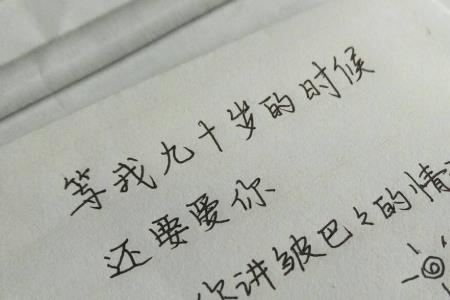 等我九十岁的时候
还要爱你
你讲皱巴々的情